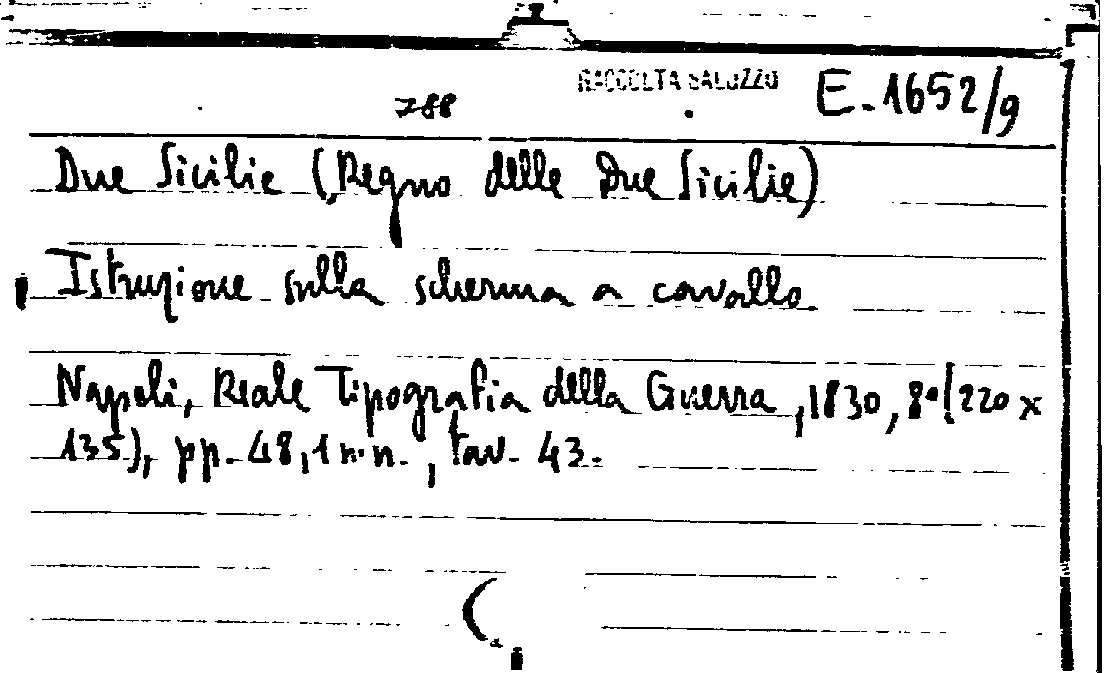 RACCOLTA SALUZZO E. 1652/9
788
Due Sicilie (Regno delle Due Sicilie)
Istruzione sulla scherma a cavallo.
Napoli, Reale Tipografia della Guerra, 1830, 8°(220 x
135), pp. 48, 1 n.n., tav. 43.